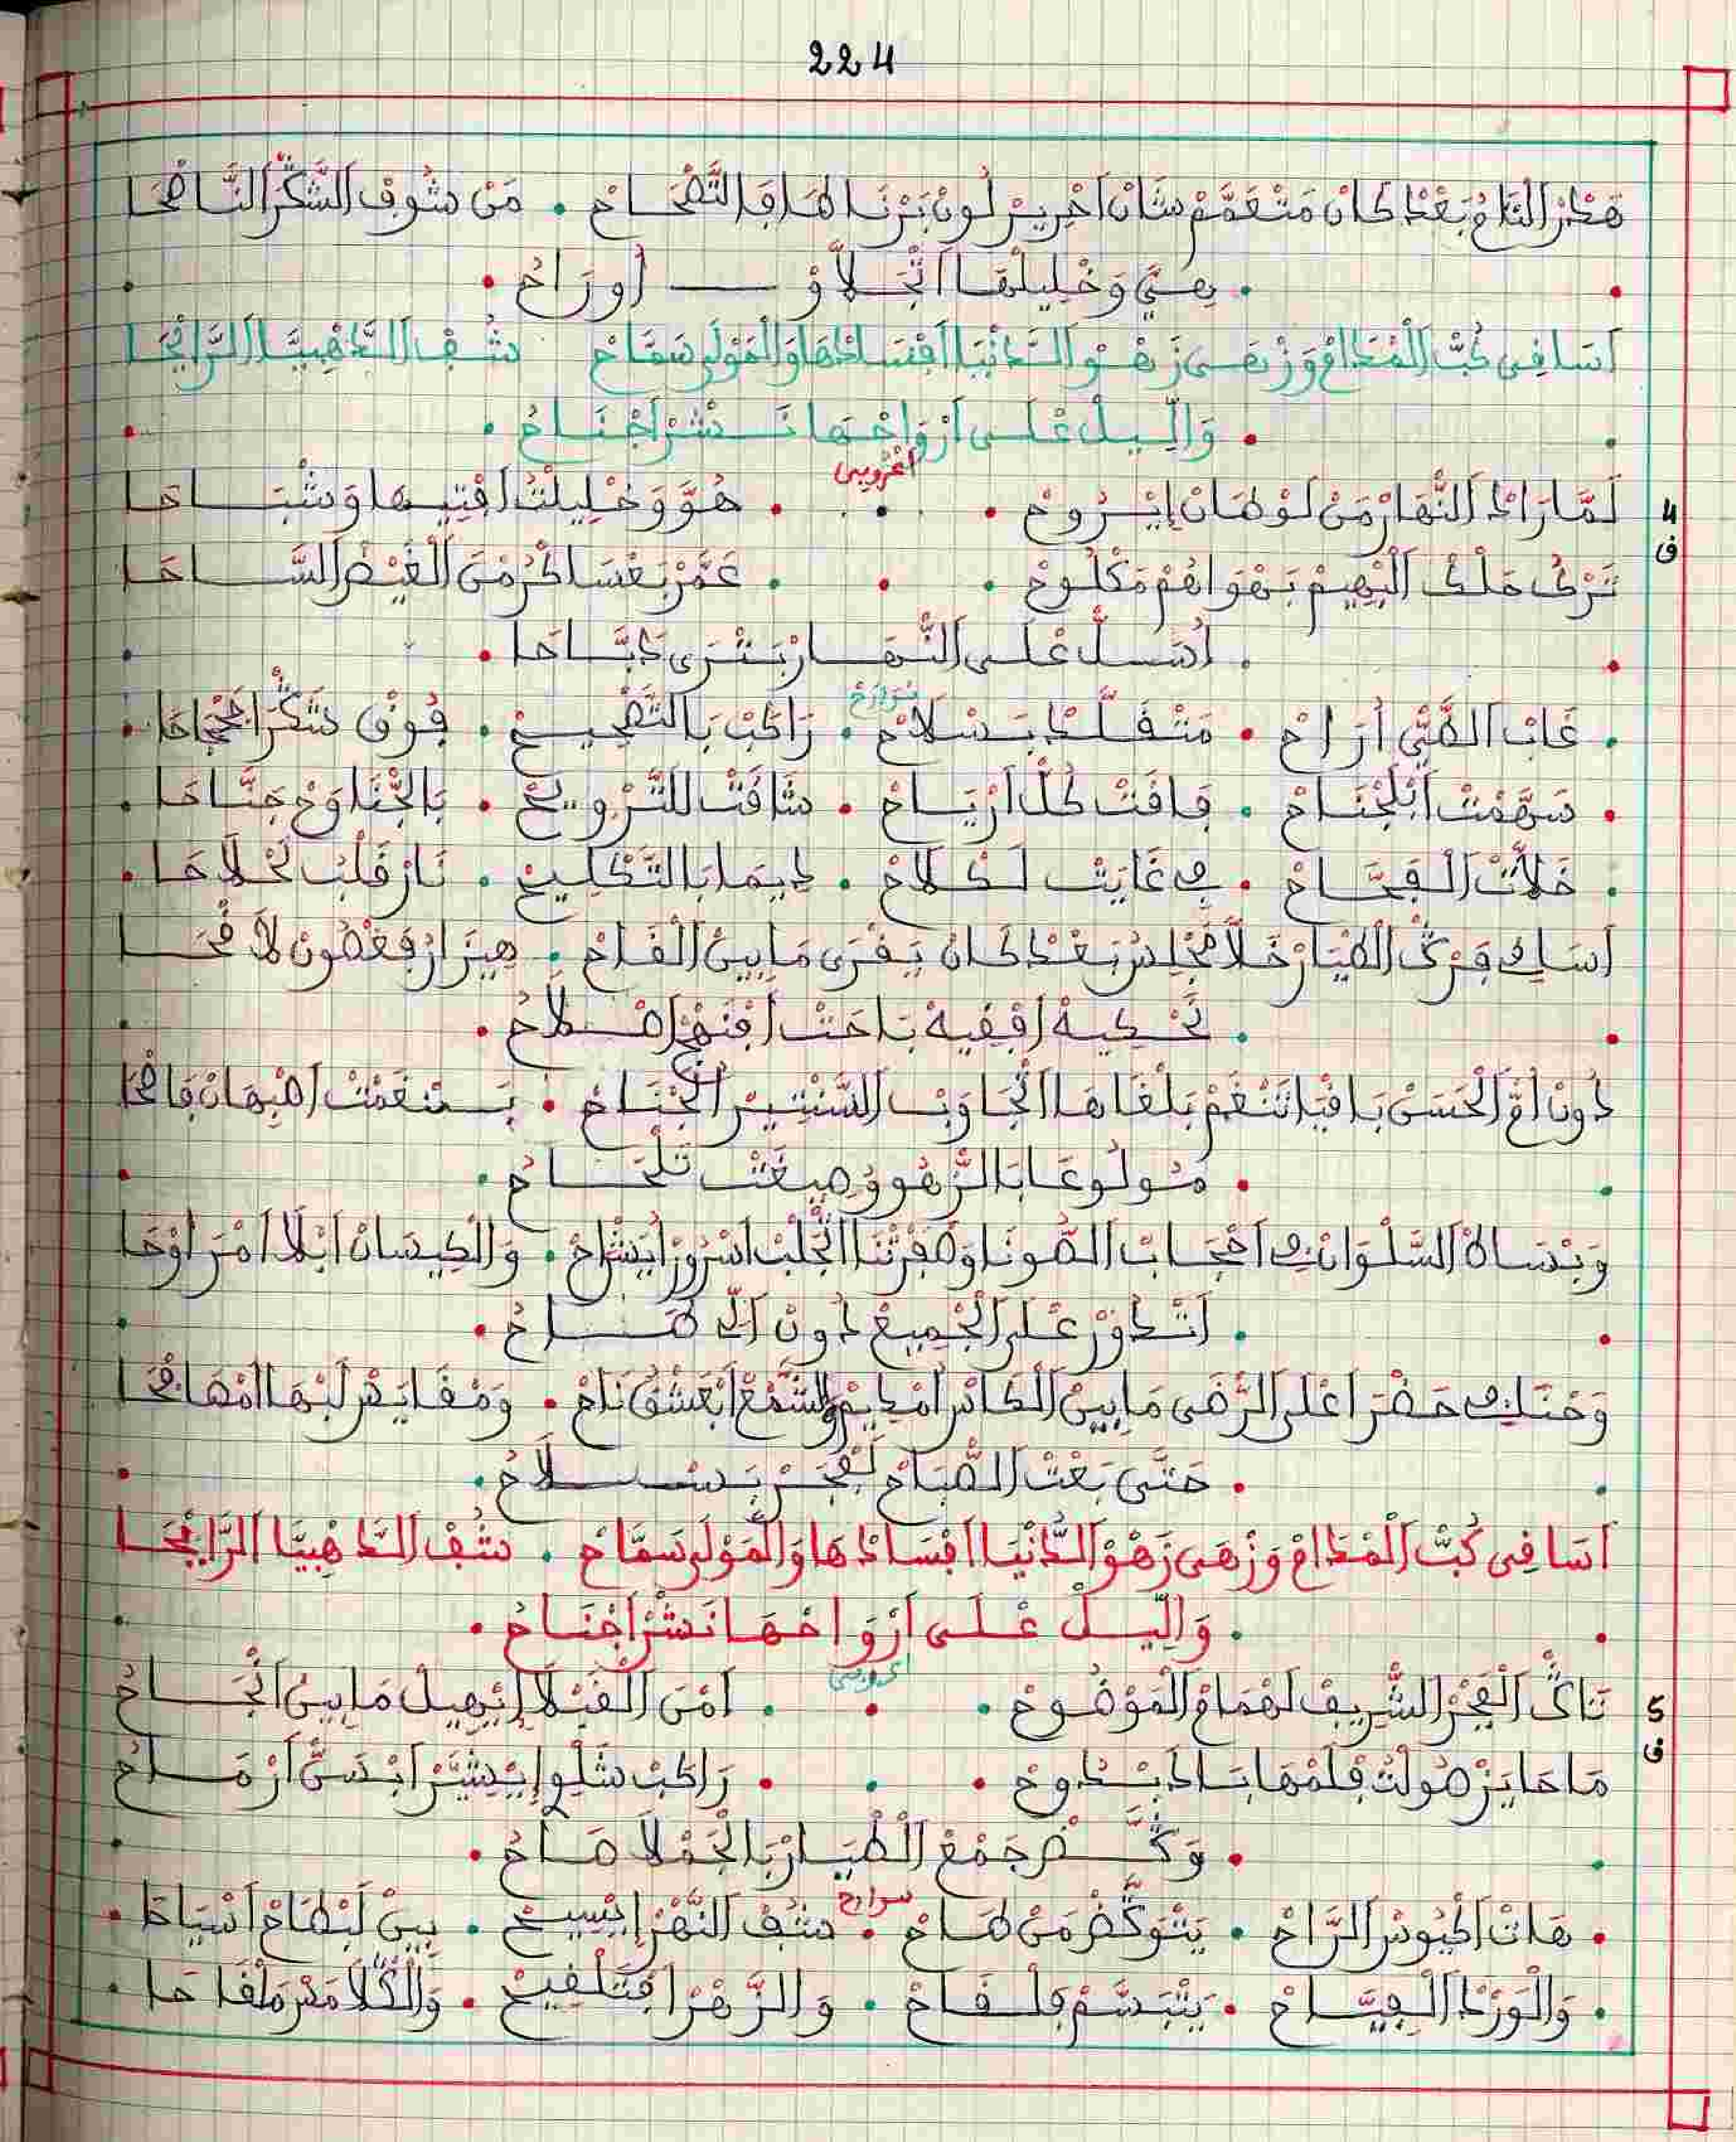 224
هَطْرْ التَّاجْ بَعْدْ كَانْ مَتْعَمَّمْ شَانْ اَحْرِيرْ لُونْ بَرْنَاطَهَا فَالتَّصْحَاحْ • مَنْ شُوفْ الشّكّرْ النَّاصْحَا
• هِيَّ وَخْلِيلْهَا اتْجَلاَّوْ — أُورَاحُ •
اَسَافِي كُبّ الْمْدَامْ وَزْهَى زَهْو الدَّنْيَا افْسَادْهَا وَالْمَوْلَى سَمَّاحْ شُفْ الدَّهْبِيَّا الرَّايْحَا
• وَاللِّيلْ عْلَى اَرْوَاحْهَا نَشْرْ اَجْنَاحُ •
اعروبي
4 ف
لَمَّا رَادْ النّْهَارْ مَنْ لَوْطَانْ اِيْرُوحْ • • • هُوَّ وَخْلِيلْتُ افْتِيهَا وَشْبَاحَا
تَرْكْ مَلْكْ الْبْهِيمْ بَهْوَاهُمْ مَكْلُوحْ • • • عَمَّرْ بَعْسَاكْرُ مْنَ الْغَيْضْ السَّاحَا
• اُصَلّْ عْلَى النّْهَارْ بَتْرَى دَبَّاحَا •
سرارح
• غَابْ الضَّيّْ اُرَاحْ • مَتْقَلَّدْ بَسْلاَحْ • رَاكَبْ بَالتَّصْحِيحْ • فُوقْ شكّرَا جمْحَاحَا •
• سَهْمْتْ اَبْلَجْنَاحْ • فَافَتْ كُلّْ اَرْيَاحْ • شَافَتْ لَلتَّرْوِيحْ • بَالجْنَاوَحْ جَنَّاحَا •
• خَلاَّتْ الْفَجَّاحْ • في غَايَتْ لَكْلاَحْ • دِيمَا بَالتَّكْلِيحْ • نَارْ فَلْبُ لَحْلاَحَا •
اَسَاقي فَرْكْ الطْيَارْ خَلاَّ مَجْلسْ بَعْدْ كَانْ يَقْرَى مَابِينْ الْقَاحْ • هِيزَارْ فَغْصُونْ لاَقْحَا
• تَحْكِيهْ اَفْقِيهْ بَاحَتْ افْنَهْجْ اصْلاَحُ •
دُونْ اُمّ الْحَسَنْ بَاقْيَا تَنْغَمْ بَلْغَاهَا اتْجَاوَبْ السَّنْتِيرْ اُلجْنَاحْ • بَسْتَغْمَتْ اصْبَهَانْ فَاصْحَا
• مُولُوعَا بَالزّْهُو وُصِيغَتْ تَلْحَاحُ •
وَبْسَاطْ السَّلْوَانْ في احْجَابْ الصُّونَا وَصَفْرَتْنَا اتْجَلْبْ اسْرُورْ اَيَنْشَرَحْ • وَالْكِيسَانْ اَبْلاَ امْرَاوْحَا
• اَتْدَاوَرْ عْلَى الْجْمِيعْ دُونْ اَلِّي طَاحُ •
وَحْنَا في حَضْرَا عْلَى الرّْضَى مَابِينْ الْكَاسْ اُمْدِيمْ وَالشَّمْعْ اَبْعَشْقُ بَاحْ • وَمْقَايَسْ لَبْهَا امْصَافْحَا
• حَتَّى بَعْتْ الصّْبَاحْ لَفْجَرْ بَسْلاَحُ •
اَسَافِي كُبّ الْمْدَامْ وَزْهَى زَهْوْ الدَّنْيَا افْسَادْهَا وَالْمَوْلَى سَمَّاحْ • شُفْ الدَّهْبِيَّا الرَّايْحَا
• وَاللِّيلْ عْلَى اَرْوَاحْهَا نَشْرْ اَجْنَاحُ •
اعروبي
5 ف
تَاكْ الْفَجْرْ الشّْرِيفْ لَهْمَامْ الْمَوْضُوحْ • • • اَمْنَ الْقَبْلاَ اِيْهِيلْ مَابِينْ اَنْجَاحُ
مَاحَا يَزْ صُولْتُ فَلْمْهَا بَادْ بَسْدُوحْ • • • رَاكَبْ شَلْو اِيْشَيَّرْ اَبْسَنّْ اَرْمَاحُ
• وَكَّضْ جَمْعْ الطْيَارْ بَالْجَمْلاَ صَاحُ •
سرارح
• هَاتْ اكْيُوسْ الرَّاحْ • يَتْوَكَّضْ مَنْ طَاحْ • شُفْ النّْهَرْ اِيْسِيحْ • بِينْ لَبْطَاحْ اَسْيَاحَا •
• وَالْوَرْدْ الْفِيَّاحْ • يَتْبَسَّمْ فَلْفَاحْ • وَالزَّهْرَا فَتَلْقِيحْ • وَالْكْلاَمَسْ مَلْقَاحَا •